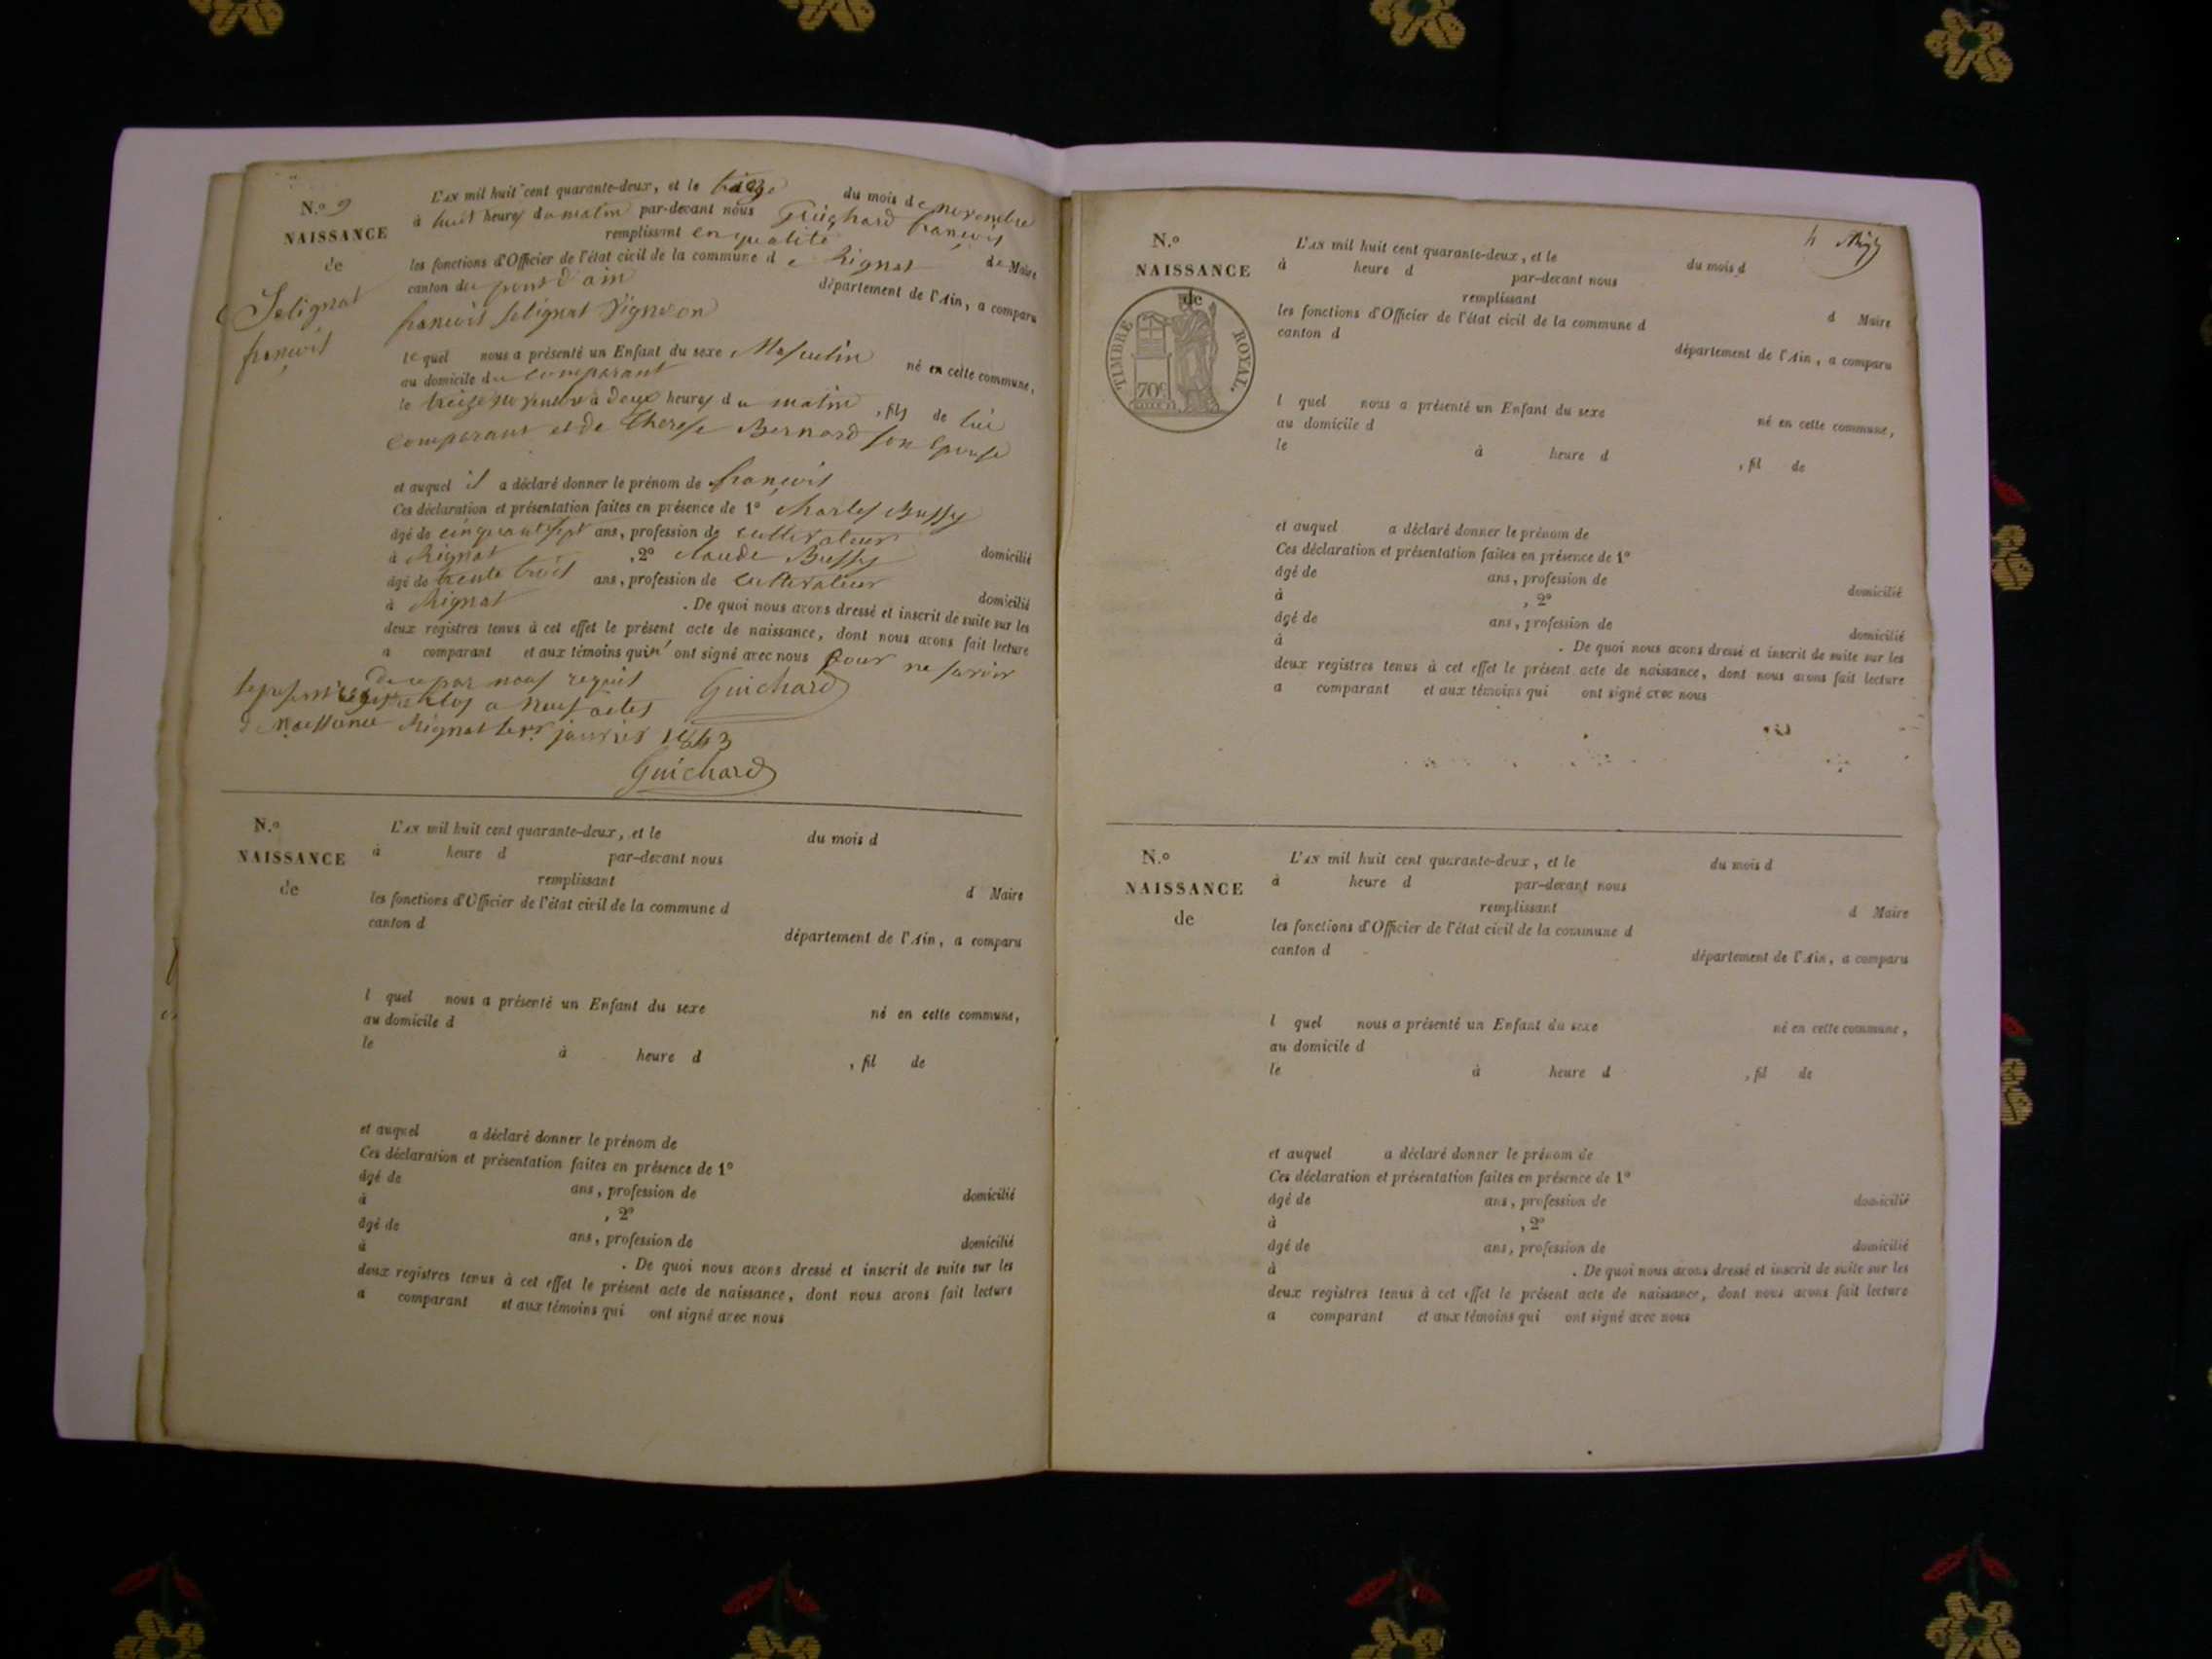 N.º 9
NAISSANCE
de
Selignat
françois
L'AN mil huit cent quarante-deux, et le treize du mois de novembre
à huit heures du matin par-devant nous Guichard françois
remplissant en qualité de Maire
les fonctions d'Officier de l'état civil de la commune de Rignat
canton du pont d'ain département de l'Ain, a comparu
françois Selignat Vigneron
lequel nous a présenté un Enfant du sexe Masculin né en cette commune,
au domicile du comparant
le treize novembre à deux heures du matin, fils de lui
comparant et de Therese Bernard son Epouse
et auquel il a déclaré donner le prénom de françois
Ces déclaration et présentation faites en présence de 1º Charles Bussy
âgé de cinquante sept ans, profession de cultivateur domicilié
à Rignat, 2º claude Bussy
âgé de trente trois ans, profession de cultivateur domicilié
à Rignat. De quoi nous avons dressé et inscrit de suite sur les
deux registres tenus à cet effet le présent acte de naissance, dont nous avons fait lecture
a comparant et aux témoins qui n' ont signé avec nous pour ne savoir
de ce par nous requis Guichard
clos a neuf actes
de Naissance Rignat le 1er janvier 1843
Guichard
N.º
NAISSANCE
de
L'AN mil huit cent quarante-deux, et le du mois d
à heure d par-devant nous
remplissant d Maire
les fonctions d'Officier de l'état civil de la commune d
canton d département de l'Ain, a comparu
l quel nous a présenté un Enfant du sexe né en cette commune,
au domicile d
le à heure d , fil de
et auquel a déclaré donner le prénom de
Ces déclaration et présentation faites en présence de 1º
âgé de ans, profession de domicilié
à , 2º
âgé de ans, profession de domicilié
à . De quoi nous avons dressé et inscrit de suite sur les
deux registres tenus à cet effet le présent acte de naissance, dont nous avons fait lecture
a comparant et aux témoins qui ont signé avec nous
4
N.º
NAISSANCE
de
TIMBRE ROYAL.
70c
L'AN mil huit cent quarante-deux, et le du mois d
à heure d par-devant nous
remplissant d Maire
les fonctions d'Officier de l'état civil de la commune d
canton d département de l'Ain, a comparu
l quel nous a présenté un Enfant du sexe né en cette commune,
au domicile d
le à heure d , fil de
et auquel a déclaré donner le prénom de
Ces déclaration et présentation faites en présence de 1º
âgé de ans, profession de domicilié
à , 2º
âgé de ans, profession de domicilié
à . De quoi nous avons dressé et inscrit de suite sur les
deux registres tenus à cet effet le présent acte de naissance, dont nous avons fait lecture
a comparant et aux témoins qui ont signé avec nous
N.º
NAISSANCE
de
L'AN mil huit cent quarante-deux, et le du mois d
à heure d par-devant nous
remplissant d Maire
les fonctions d'Officier de l'état civil de la commune d
canton d département de l'Ain, a comparu
l quel nous a présenté un Enfant du sexe né en cette commune,
au domicile d
le à heure d , fil de
et auquel a déclaré donner le prénom de
Ces déclaration et présentation faites en présence de 1º
âgé de ans, profession de domicilié
à , 2º
âgé de ans, profession de domicilié
à . De quoi nous avons dressé et inscrit de suite sur les
deux registres tenus à cet effet le présent acte de naissance, dont nous avons fait lecture
a comparant et aux témoins qui ont signé avec nous